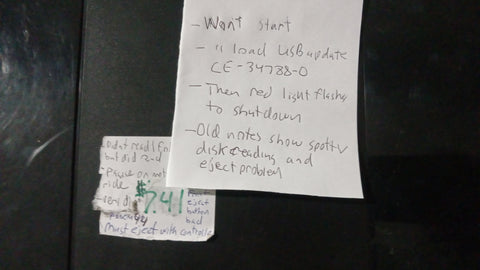 - Wont start
- " load USB update
CE-34788-0
- Then red light flashes
to shutdown
- Old notes show spotty
disk reading and
eject problem
- Didnt read 1
but did 2nd
$7.41
eject
button
bad
must eject with controlle